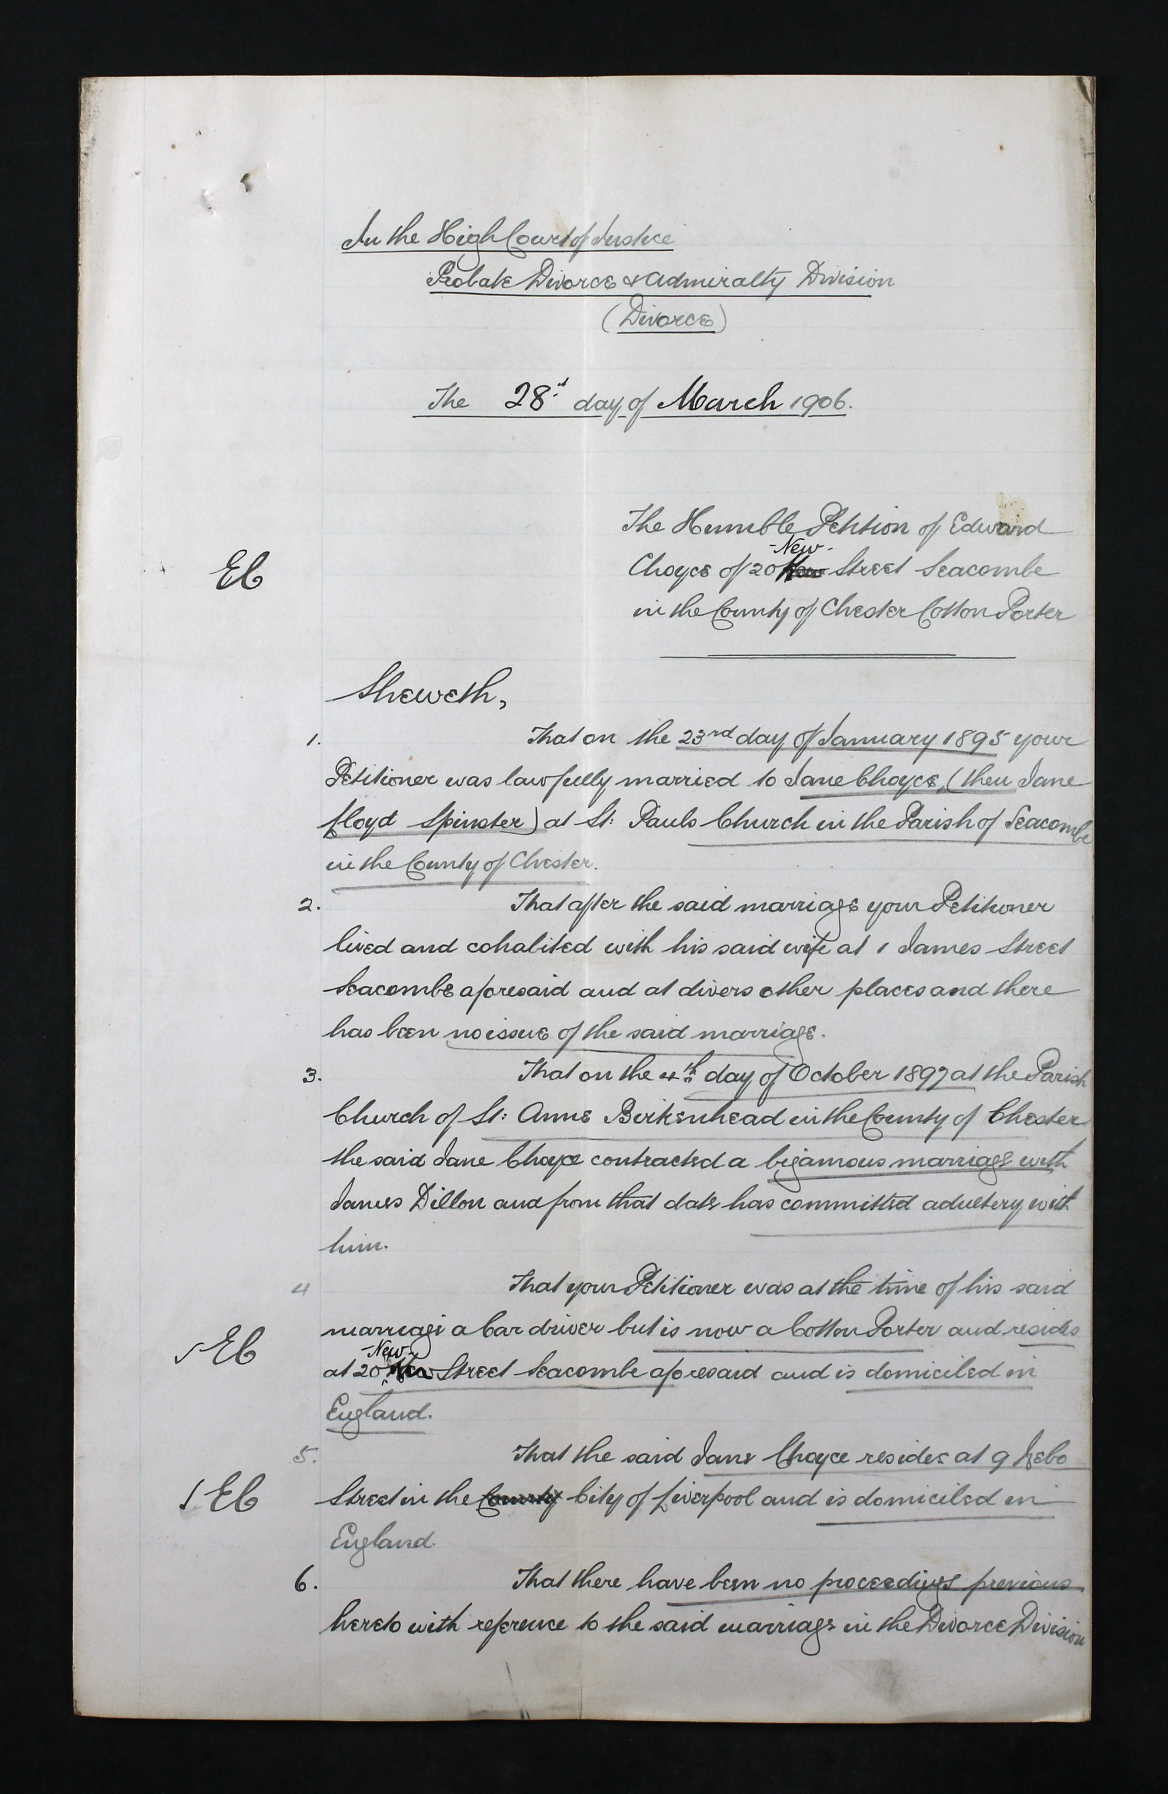 In the High Court of Justice
Probate Divorce & Admiralty Division
(Divorce)
The 28th day of March 1906.
The Humble Petition of Edward
-New-
EC Choyce of 20 Street Seacombe
in the County of Chester Cotton Porter
Sheweth,
1. That on the 23rd day of January 1895 your
Petitioner was lawfully married to Jane Choyce, (then Jane
Floyd Spinster) at St: Pauls Church in the Parish of Seacombe
in the County of Chester.
2. That after the said marriage your Petitioner
lived and cohabited with his said wife at 1 James Street
Seacombe aforesaid and at divers other places and there
has been no issue of the said marriage.
3. That on the 4th day of October 1897 at the Parish
Church of St: Anne Birkenhead in the County of Chester
the said Jane Choyce contracted a bigamous marriage with
James Dillon and from that date has committed adultery with
him.
4 That your Petitioner was at the time of his said
marriage a Car driver but is now a Cotton Porter and resides
-New-
EC at 20 Street Seacombe aforesaid and is domiciled in
England.
5. That the said Jane Choyce resides at 9 Nebo
EC Street in the County City of Liverpool and is domiciled in
England.
6. That there have been no proceedings previous
hereto with reference to the said marriage in the Divorce Division